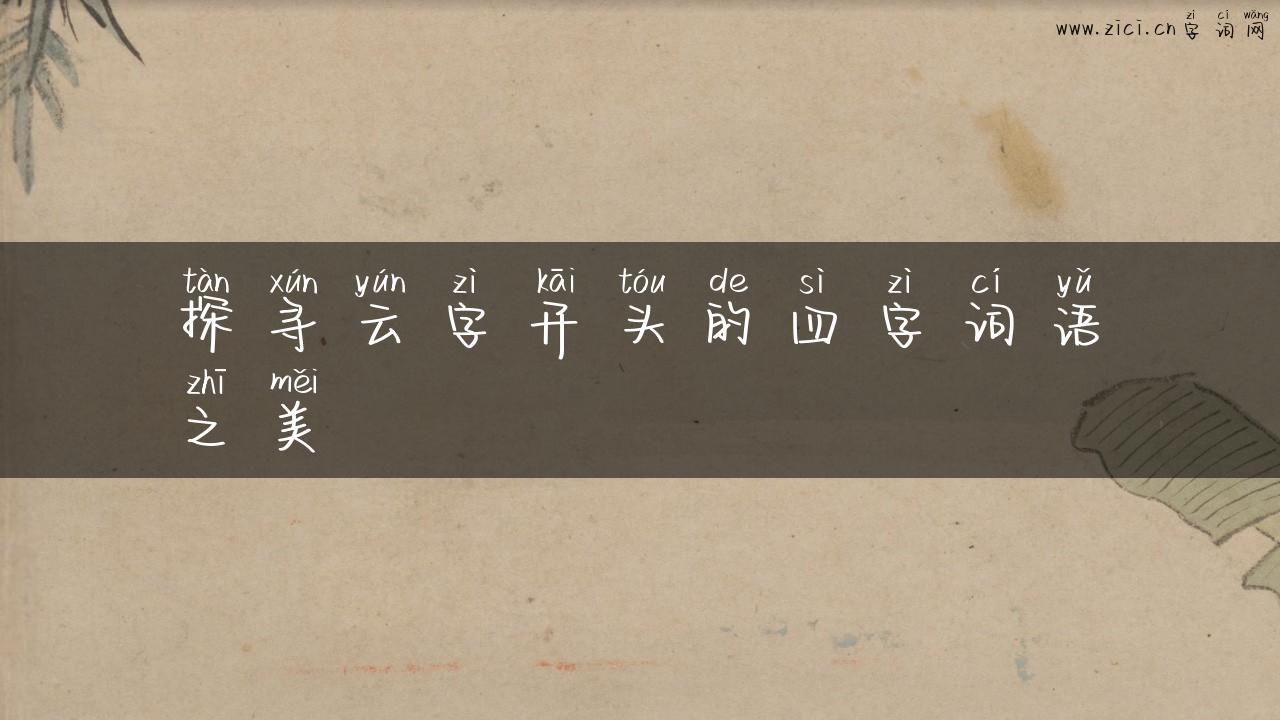 zì cí wǎng
www.zici.cn 字词网
tàn xún yún zì kāi tóu de sì zì cí yǔ
探寻云字开头的四字词语
zhī měi
之美